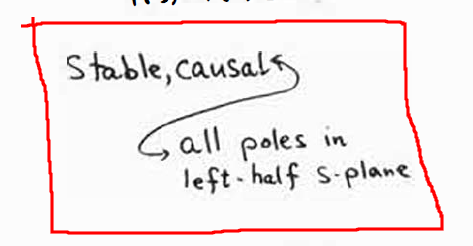 Stable, causal
all poles in
left-half S-plane